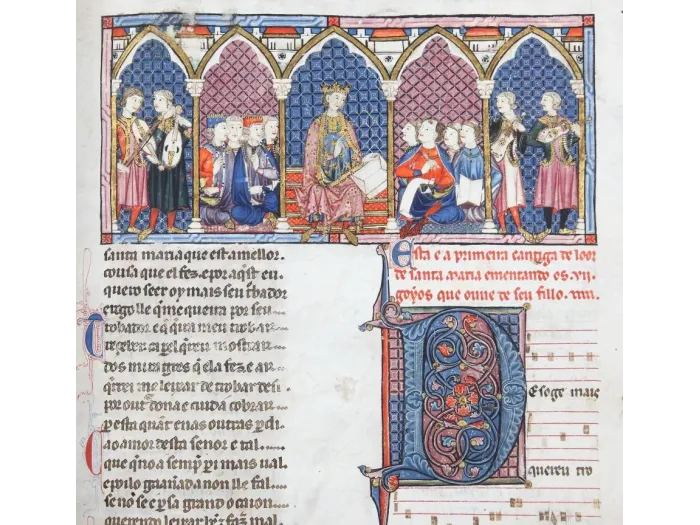 santa maria que est a mellor.
cousa que el fez. e por aq̄st eu.
quero seer oy mais seu t̄bador
e rogo lle q̄ me queira por seu
trobador e q̄ q̄ira meu trobar
reçeber. ca per el q̄reu mostrar
dos miragres q̄ ela fez. e ar
q̄rrei me leixar de trobar desi.
por out̄ dona e cuid a cobrar
per esta quant enas outras p̄di
ca o amor desta sennor e tal
que q̄no a semp̄ p̄i mais ual.
e poilo gaannad a non lle fal
se nō se e p̄ sa grand ocaion
querendo leixar bē ⁊ faz̄ mal
Esta e a primeira cantiga de loor
de santa maria ementando os .vii.
goyos que ouue de seu fillo.
Des oge mais
quer eu tro